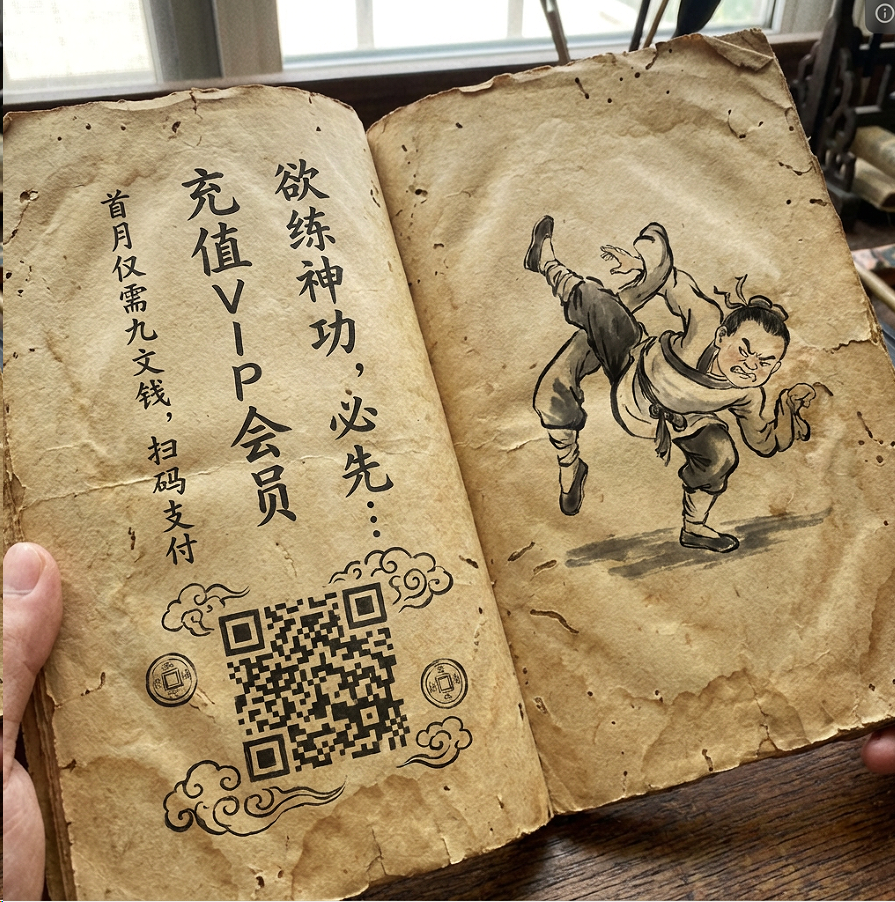 欲练神功，必先…
充值VIP会员
首月仅需九文钱，扫码支付